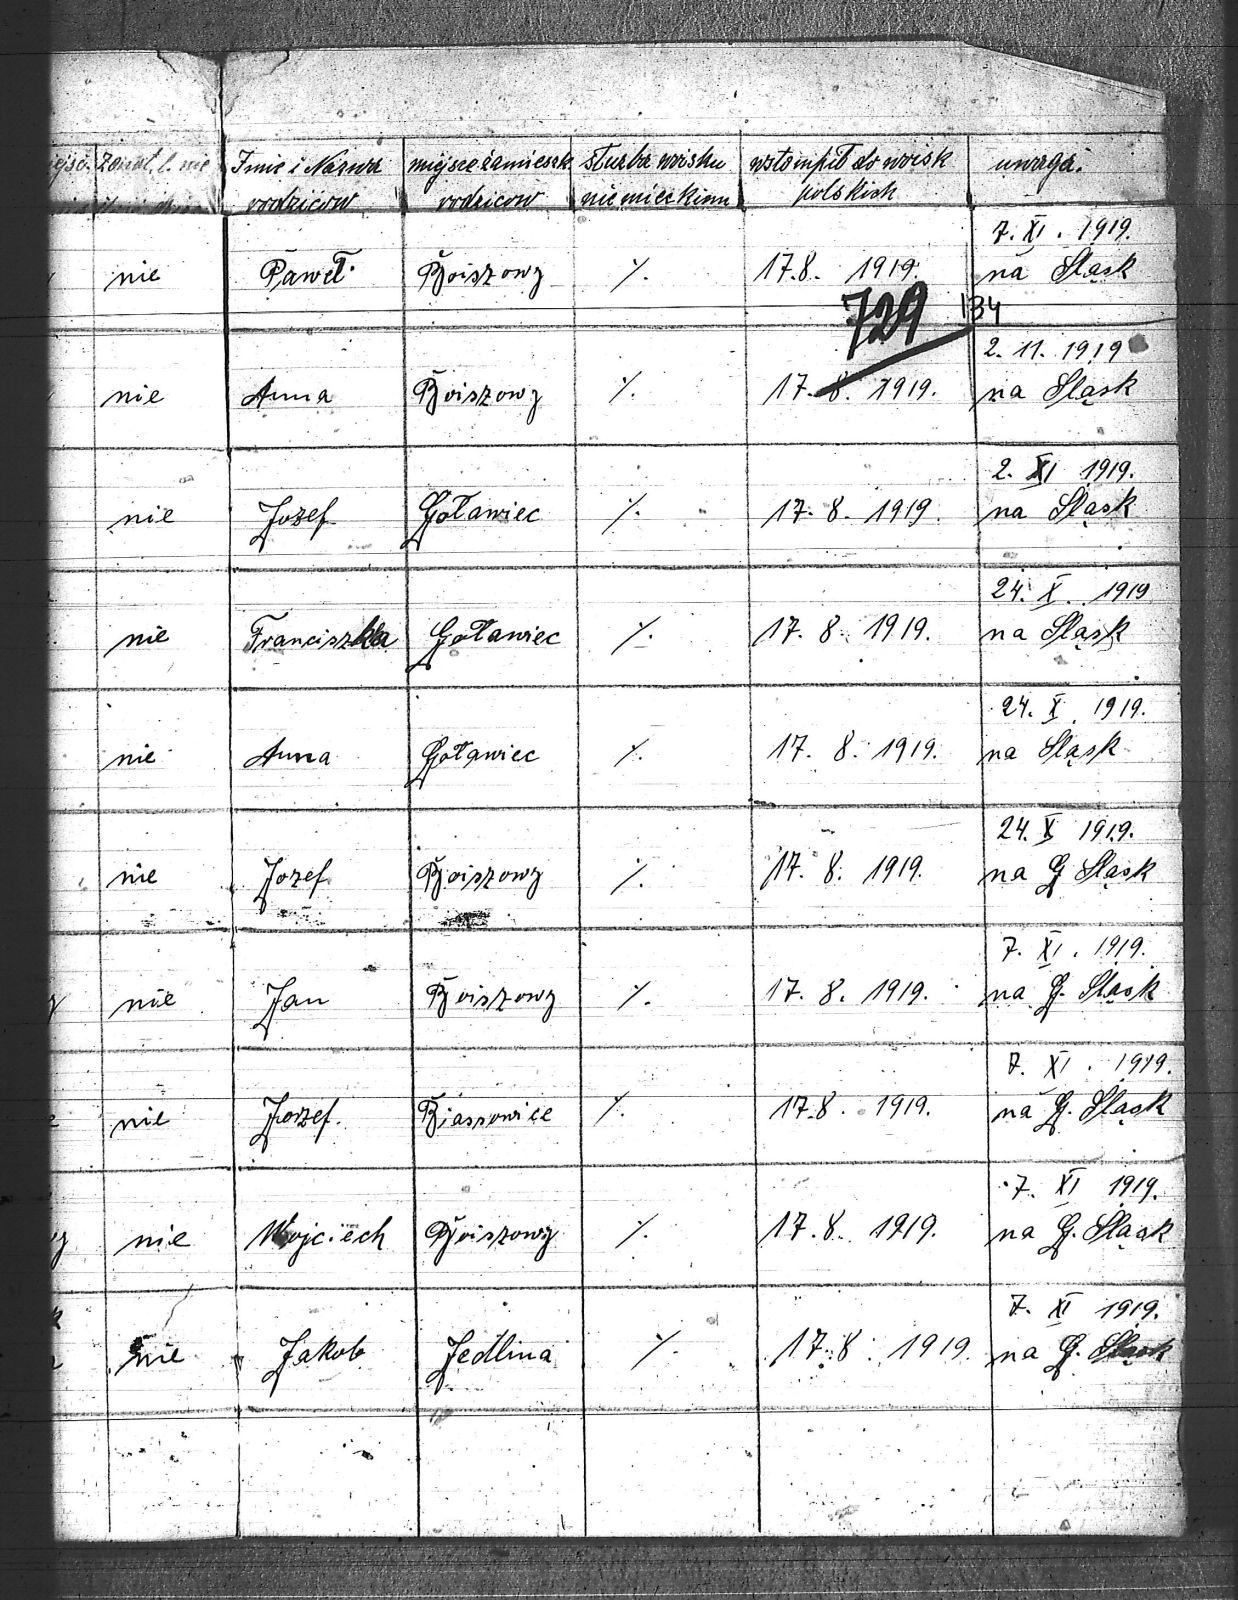 żonat. l. nie Imie i Nazwa miejsce zamieszk służba woisku wstompił do woisk uwaga.
rodziców rodziców niemieckim polskich
7. XI. 1919.
nie Paweł Bojszowy ٪. 17.8. 1919. na Śląsk
729 134
2. 11. 1919
nie Anna Bojszowy ٪. 17. 8. 1919. na Śląsk
2. XI 1919.
nie Jozef Goławiec ٪. 17. 8. 1919. na Śląsk
24. X. 1919
nie Franciszka Goławiec ٪. 17. 8. 1919. na Śląsk
24. X. 1919.
nie Anna Goławiec ٪. 17. 8. 1919. na Sląsk
24. X 1919.
nie Jozef Bojszowy ٪. 17. 8. 1919. na G Sląsk
7. XI. 1919.
nie Jan Bojszowy ٪. 17. 8. 1919. na G. Sląsk
7. XI. 1919.
nie Jozef. Biassowice ٪. 17.8. 1919. na G. Sląsk
7. XI 1919.
nie Wojciech Bojszowy ٪. 17.8. 1919. na G. Sląsk
7. XI 1919.
nie Jakob Jedlina ٪. 17.8. 1919. na G. Sląsk